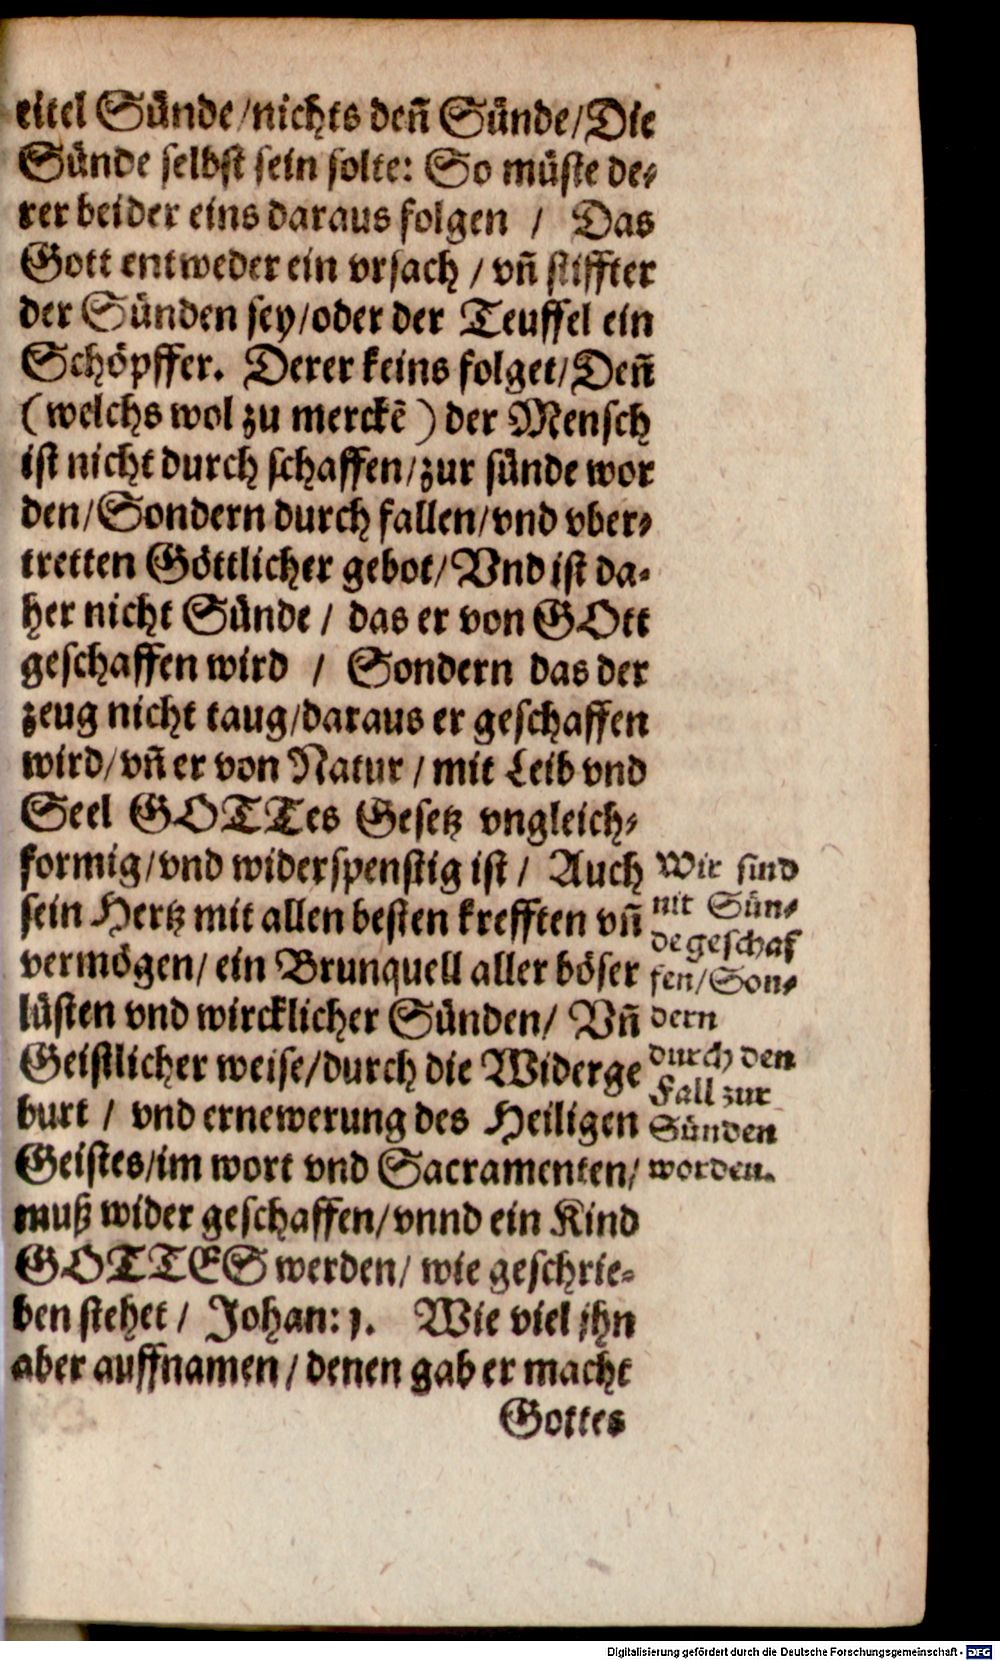 eitel Sünde/nichts deñ Sünde/Die
Sünde selbst sein solte: So müste de-
rer beider eins daraus folgen / Das
Gott entweder ein vrsach / vñ stiffter
der Sünden sey/oder der Teuffel ein
Schöpffer. Derer keins folget/Deñ
(welchs wol zu merckē) der Mensch
ist nicht durch schaffen/zur sünde wor
den/Sondern durch fallen/vnd vber-
tretten Göttlicher gebot/Vnd ist da-
her nicht Sünde / das er von GOtt
geschaffen wird / Sondern das der
zeug nicht taug/daraus er geschaffen
wird/vñ er von Natur / mit Leib vnd
Seel GOTTes Gesetz vngleich-
formig/vnd widerspenstig ist / Auch
sein Hertz mit allen besten krefften vñ
vermögen/ ein Brunquell aller böser
lüsten vnd wircklicher Sünden/ Vñ
Geistlicher weise/durch die Widerge
burt / vnd ernewerung des Heiligen
Geistes/im wort vnd Sacramenten/
muß wider geschaffen/vnnd ein Kind
GOTTES werden/ wie geschrie-
ben stehet / Johan: 1. Wie viel jhn
aber auffnamen / denen gab er macht
Gottes
Wir sind
nit Sün-
de geschaf
fen/Son-
dern
durch den
Fall zur
Sünden
worden.
Digitalisierung gefördert durch die Deutsche Forschungsgemeinschaft - DFG